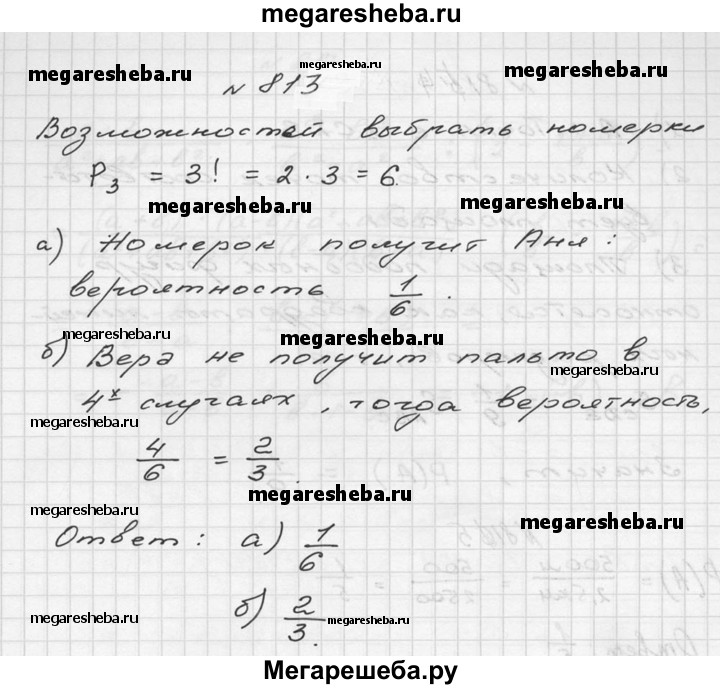 megaresheba.ru
megaresheba.ru megaresheba.ru
№ 813
megaresheba.ru
Возможностей выбрать номерки
P₃ = 3! = 2 · 3 = 6.
megaresheba.ru megaresheba.ru
а) Номерок получит Аня:
вероятность 1/6.
megaresheba.ru megaresheba.ru
б) Вера не получит пальто в
megaresheba.ru
4ˣ случаях, тогда вероятность,
megaresheba.ru
4/6 = 2/3.
megaresheba.ru
megaresheba.ru megaresheba.ru
Ответ: а) 1/6
б) 2/3.
megaresheba.ru megaresheba.ru
Мегарешеба.ру